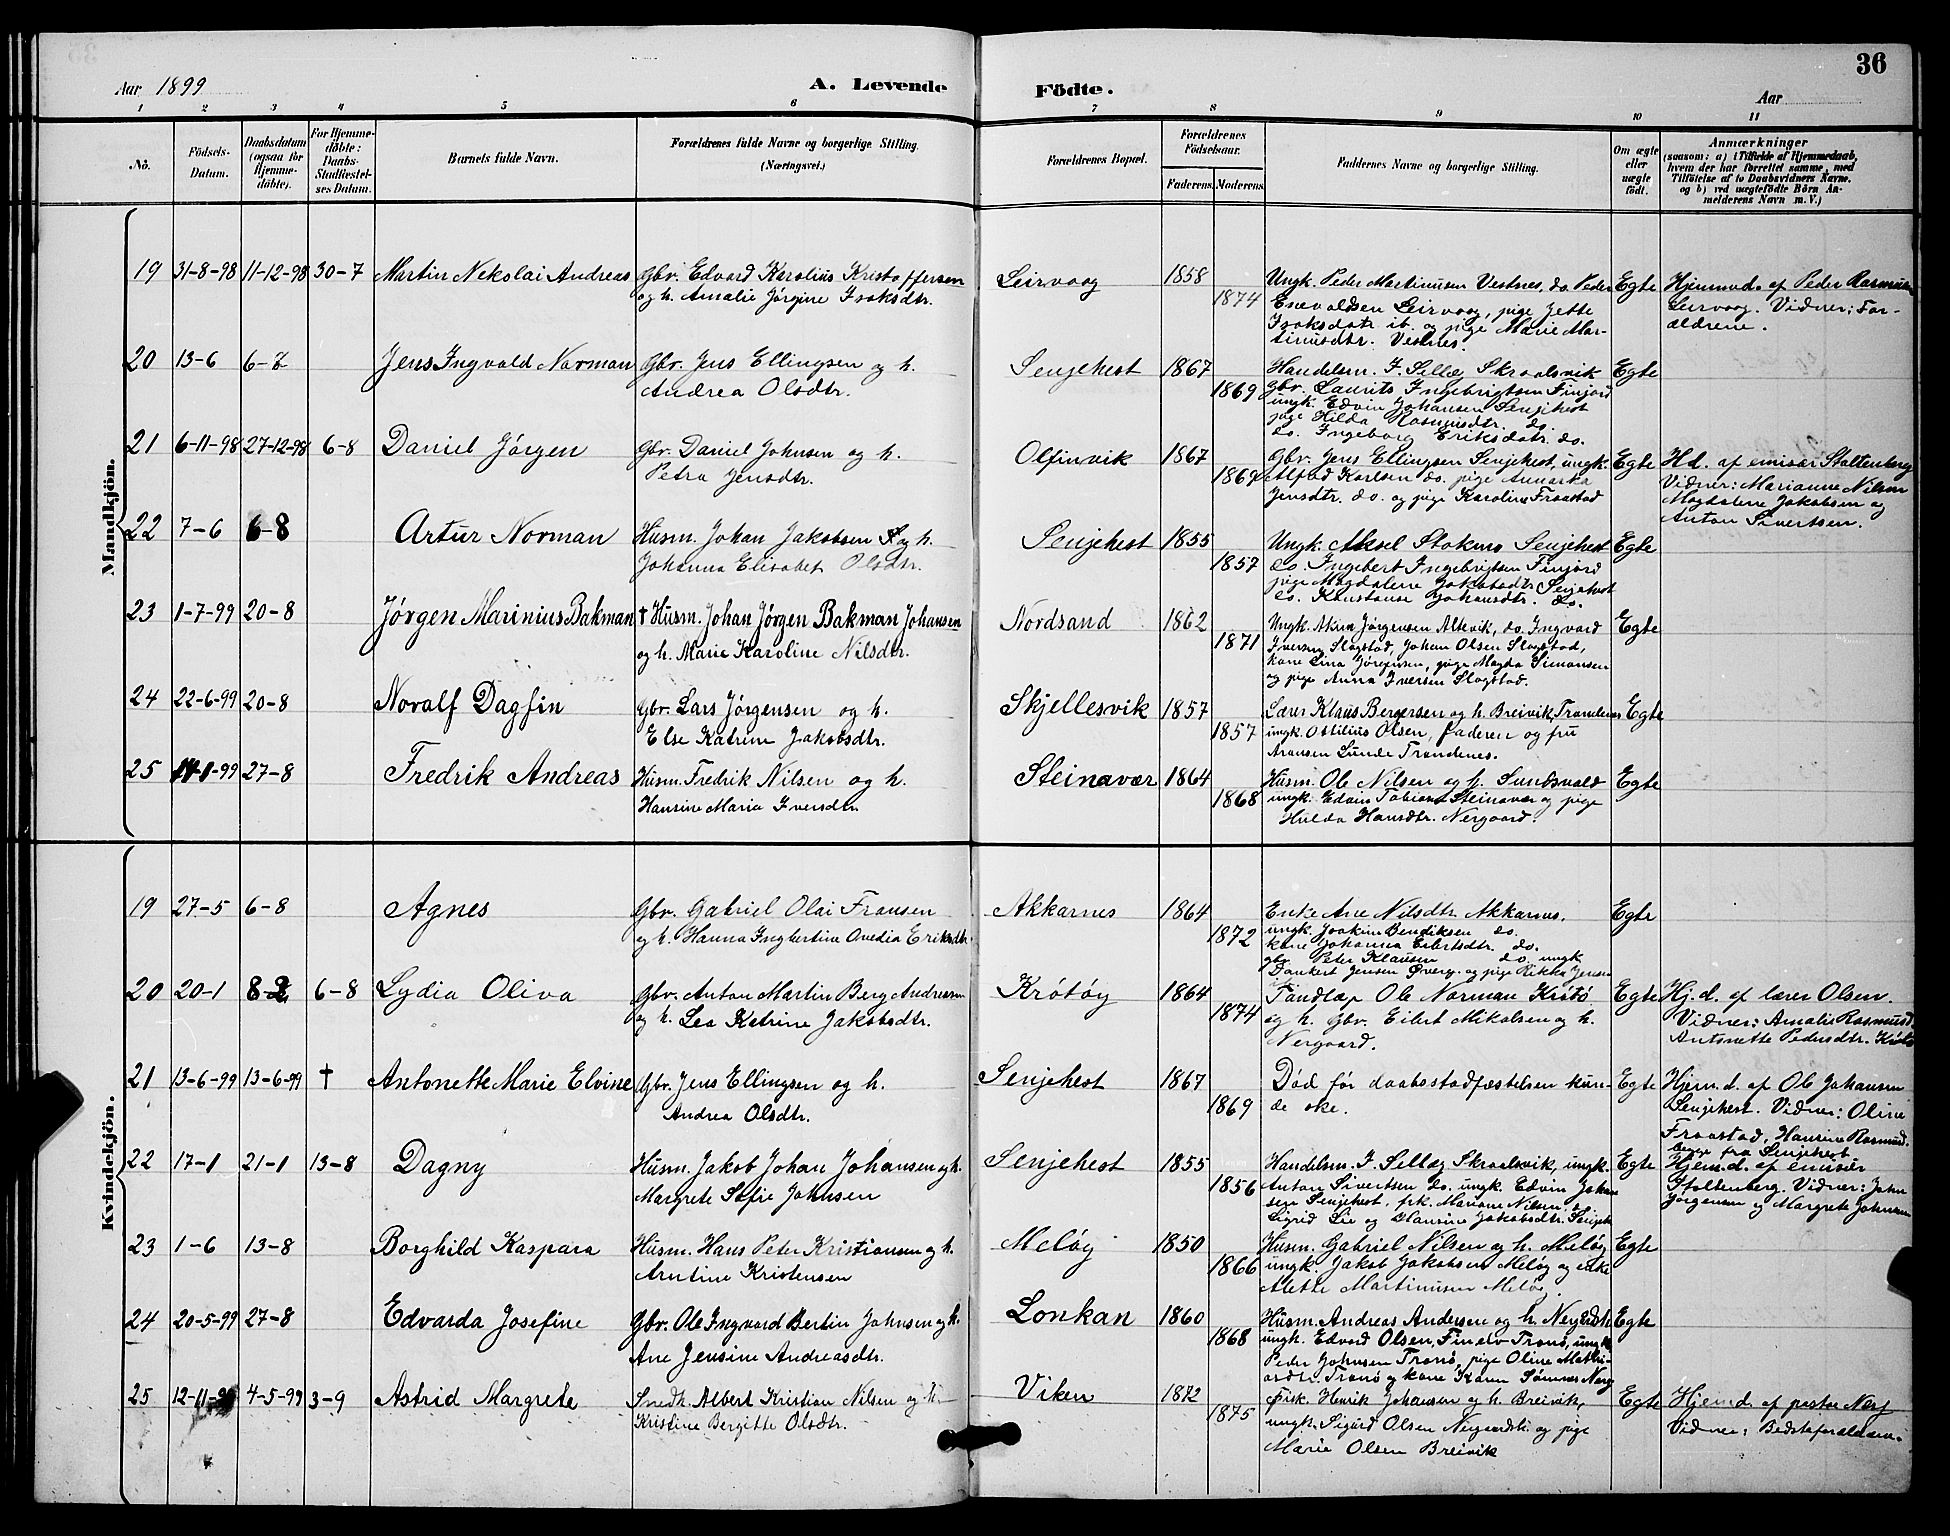 36
Aar 1899
A. Levende
Födte.
Aar
1 2 3 4 5 6 7 8 9 10 11
No.
Födsels-Datum.
Daabsdatum (ogsaa for Hjemme-döbte).
For Hjemme-döbte: Daabs-Stadfæstel-ses Datum.
Barnets fulde Navn.
Forældrenes fulde Navne og borgerlige Stilling.
(Næringsvei.)
Forældrenes Bopæl.
Forældrenes Födselsaar.
Faderens. Moderens.
Faddernes Navne og borgerlige Stilling.
Om ægte eller uægte födt.
Anmærkninger
(saasom: a) i Tilfælde af Hjemmedaab,
hvem der har forrettet samme, med
Tilföielse af to Daabsvidners Navne,
og b) ved uægtefödte Börn An-
melderens Navn m. V.)
Mandkjön.
19 31-8-98 11-12-98 30-7 Martin Nekolai Andreas Gbr. Edvard Karolius Kristoffersen
og h. Amalie Jørgine Isaksdtr.
Leirvaag 1858 1874
Ungk. Peder Martinusen Vestnes, do. Peder
Enevaldsen Leirvaag, pige Jette
Isaksdatr. ib. og pige Marie Mar-
tinusdtr. Vestnes.
Egte
Hjemmed. af Peder Rasmusen
Leirvaag. Vidner: For-
ældrene.
20 13-6 6-8 Jens Ingvald Norman Gbr. Jens Ellingsen og h.
Andrea Olsdtr.
Senjehest 1867 1869
Handelsm. J. Sellæg Skraalsvik
Gbr. Laurits Ingebrigtsen Finjord
ungk. Edvin Johansen Senjehest
pige Hilda Rasmusdtr. do.
do. Ingeborg Eriksdatr. do.
Egte
21 6-11-98 27-12-98 6-8 Daniel Jørgen Gbr. Daniel Johnsen og h.
Petra Jensdtr.
Olfinvik 1867 1869
Gbr. Jens Ellingsen Senjehest, ungk.
Alfred Karlsen do. pige Annarka
Jensdtr. do. og pige Karoline Fraastad
Egte
Hd. af emisær Stoltenberg
Vidner: Marianne Nilsen
Magdalene Jakobsen og
Anton Sivertsen.
22 7-6 6-8 Artur Norman Husm. Johan Jakobsen og h.
Johanna Elisabet Olsdtr.
Senjehest 1855 1857
Ungk. Aksel Stokmo Senjehest
do. Ingebert Ingebrigtsen Finjord
pige Magdalene Jakobsdtr. Senjehest
do. Konstanse Johansdtr. do.
Egte
23 1-7-99 20-8 Jørgen Marinius Bakman † Husm. Johan Jørgen Bakman Johansen
og h. Marie Karoline Nilsdtr.
Nordsand 1862 1871
Ungk. Akim Jørgensen Altevik, do. Ingvard
Iversen Slagstad, Johan Olsen Slagstad,
kone Lina Jørgensen, pige Magda Simonsen
og pige Anna Iversen Slagstad.
Egte
24 22-6-99 20-8 Noralf Dagfin Gbr. Lars Jørgensen og h.
Else Katrine Jakobsdtr.
Skjellesvik 1857 1857
Lærer Klaus Bergersen og h. Breivik, Trondenes
ungk. Ottilius Olsen, faderen og fru
Aronsen Lunde Trondenes.
Egte
25 14-1-99 27-8 Fredrik Andreas Husm. Fredrik Nilsen og h.
Hansine Maria Iversdtr
Steinavær 1864 1868
Husm. Ole Nilsen og h. Sundsvold
ungk. Edvin Tobiasen Steinavær og pige
Hulda Hansdtr. Nergaard.
Egte
Kvindekjön.
19 27-5 6-8 Agnes Gbr. Gabriel Olai Fransen
og h. Hanna Ingbertine Ovedia Eriksdtr.
Akkarnes 1864 1872
Enke Ane Nilsdtr. Akkarnes.
ungk. Joakim Bendiksen do.
kone Johanna Eilertsdtr. do.
gbr. Peter Klausen do. ungk.
Dankert Jensen Øverg. og pige Rikka Jensen
Egte
20 20-1 8-2 6-8 Lydia Oliva Gbr. Anton Martin Berg Andreasen
og h. Lea Katrine Jakobsdtr.
Krøtøy 1864 1874
Tandlæge Ole Norman Krøtø
og h. Gbr. Eilert Mikalsen og h.
Nergaard.
Egte
Hj.d. af lærer Olsen.
Vidner: Amalie Rasmusd.
Antonette Pedersdtr. Krøtø
21 13-6-99 13-6-99 † Antonette Marie Elvine Gbr. Jens Ellingsen og h.
Andrea Olsdtr.
Senjehest 1867 1869
Død før daabsstadfæstelsen kun-
de ske.
Egte
Hjem.d. af Ole Johansen
Senjehest. Vidner: Oline
Fraastad, Hansine Rasmusd.
begge fra Senjehest
22 17-1 21-1 13-8 Dagny Husm. Jakob Johan Johansen og h.
Margrete Sofie Johnsen
Senjehest 1855 1856
Handelsm. J. Sellæg Skraalsvik, ungk.
Anton Sivertsen do. ungk. Edvin Johan-
sen Senjehest, frk. Mariane Nilsen,
Sigrid Lie og Hansine Jakobsdtr. Senjeh
Egte
Hjem.d. af emisær
Stoltenberg. Vidner: John
Jørgensen og Margrete Johnsen
23 1-6 13-8 Borghild Kaspara Husm. Hans Peter Kristiansen og h.
Arntine Kristensen
Meløy 1850 1866
Husm. Gabriel Nilsen og h. Meløy
ungk. Jakob Jakobsen Meløy og enke
Alette Martinusen Meløy.
Egte
24 20-5-99 27-8 Edvarda Josefine Gbr. Ole Ingvard Bertin Johnsen og h.
Ane Jensine Andreasdtr.
Lonkan 1860 1868
Husm. Andreas Andersen og h.
ungk. Edvard Olsen, Tranø, ungk
Peder Johnsen Tranø, pige Oline Math-
Tranø og kone Karen
Egte
25 12-11-98 4-5-99 3-9 Astrid Margrete Snedk. Albert Kristian Nilsen og h.
Kristine Bergitte Olsdtr.
Viken 1872 1875
Fisk. Henrik Johansen og h. Breivik,
ungk. Sigurd Olsen og pige
Marie Olsen Breivik
Egte
Hjemd. af pastor
Vidner: Bedsteforældrene.